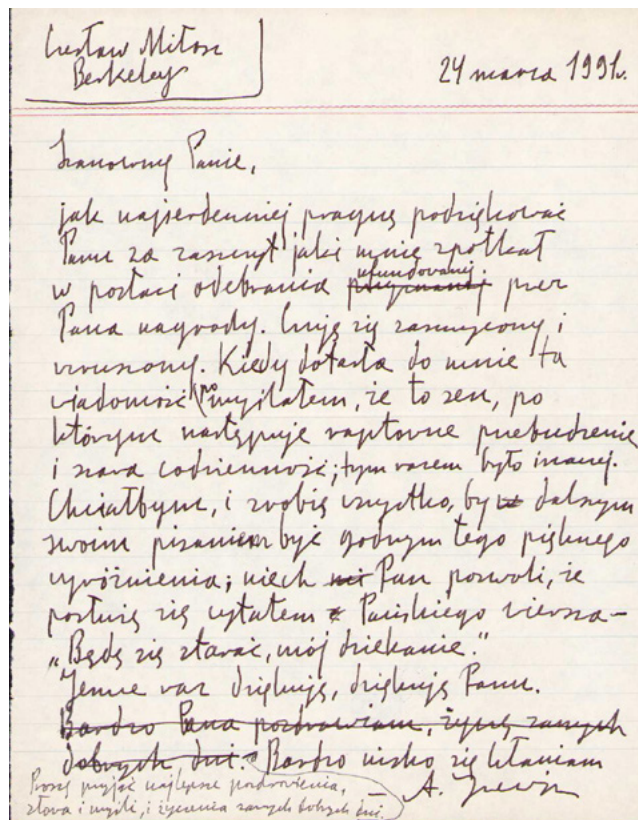 Czesław Miłosz
Berkeley
24 marca 1991r.
Szanowny Panie,
jak najserdeczniej pragnę podziękować
Panu za zaszczyt jaki mnie spotkał
w postaci odebrania przyznanej ufundowanej przez
Pana nagrody. Czuję się zaszczycony i
wzruszony. Kiedy dotarła do mnie ta
wiadomość pomyślałem, że to sen, po
którym następuje raptowne przebudzenie
i szara codzienność; tym razem było inaczej.
Chciałbym, i zrobię wszystko, by w dalszym
swoim pisaniem być godnym tego pięknego
wyróżnienia; niech Pan pozwoli, że
posłużę się cytatem z Pańskiego wiersza –
„Będę się starać, mój dziekanie."
Jeszcze raz dziękuję, dziękuję Panu.
Bardzo Pana pozdrawiam, życzę samych
dobrych dni. Bardzo nisko się kłaniam
Proszę przyjąć najlepsze pozdrowienia,
słowa i myśli, i życzenia samych dobrych dni.
– A.